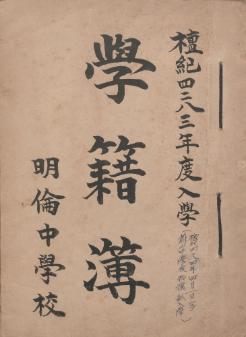 檀紀四二八三年度入學
學籍簿
明倫中學校